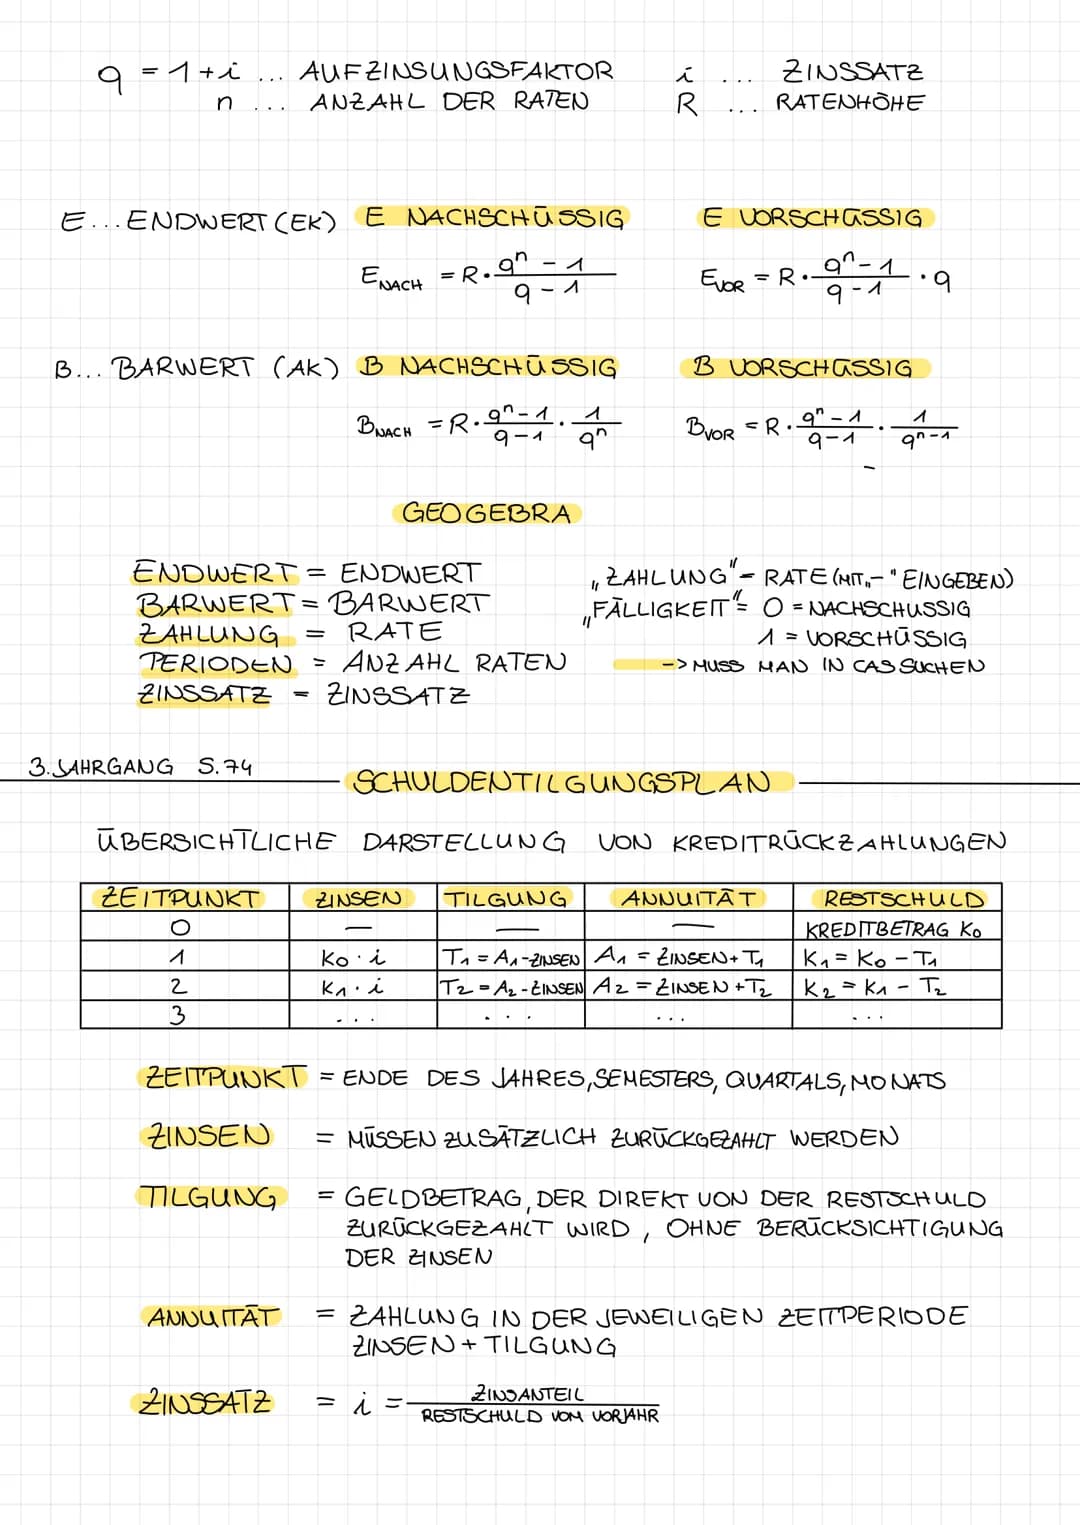 q = 1 + i ... AUFZINSUNGSFAKTOR i ... ZINSSATZ
n ... ANZAHL DER RATEN R ... RATENHÖHE
E... ENDWERT (EK) E NACHSCHÜSSIG E VORSCHÜSSIG
E_NACH = R · (q^n - 1)/(q - 1) E_VOR = R · (q^n - 1)/(q - 1) · q
B... BARWERT (AK) B NACHSCHÜSSIG B VORSCHÜSSIG
B_NACH = R · (q^n - 1)/(q - 1) · 1/q^n B_VOR = R · (q^n - 1)/(q - 1) · 1/q^(n-1)
GEOGEBRA
ENDWERT = ENDWERT
BARWERT = BARWERT
ZAHLUNG = RATE
PERIODEN = ANZAHL RATEN
ZINSSATZ = ZINSSATZ
„ZAHLUNG" = RATE (MIT „-" EINGEBEN)
„FÄLLIGKEIT" = 0 = NACHSCHUSSIG
1 = VORSCHÜSSIG
-> MUSS MAN IN CAS SUCHEN
3. JAHRGANG S. 74
SCHULDENTILGUNGSPLAN
ÜBERSICHTLICHE DARSTELLUNG VON KREDITRÜCKZAHLUNGEN
ZEITPUNKT ZINSEN TILGUNG ANNUITÄT RESTSCHULD
0 — — — KREDITBETRAG K₀
1 K₀ · i T₁ = A₁ - ZINSEN A₁ = ZINSEN + T₁ K₁ = K₀ - T₁
2 K₁ · i T₂ = A₂ - ZINSEN A₂ = ZINSEN + T₂ K₂ = K₁ - T₂
3 ... ... ... ...
ZEITPUNKT = ENDE DES JAHRES, SEMESTERS, QUARTALS, MONATS
ZINSEN = MÜSSEN ZUSÄTZLICH ZURÜCKGEZAHLT WERDEN
TILGUNG = GELDBETRAG, DER DIREKT VON DER RESTSCHULD
ZURÜCKGEZAHLT WIRD, OHNE BERÜCKSICHTIGUNG
DER ZINSEN
ANNUITÄT = ZAHLUNG IN DER JEWEILIGEN ZEITPERIODE
ZINSEN + TILGUNG
ZINSSATZ = i = ZINSANTEIL / RESTSCHULD VOM VORJAHR